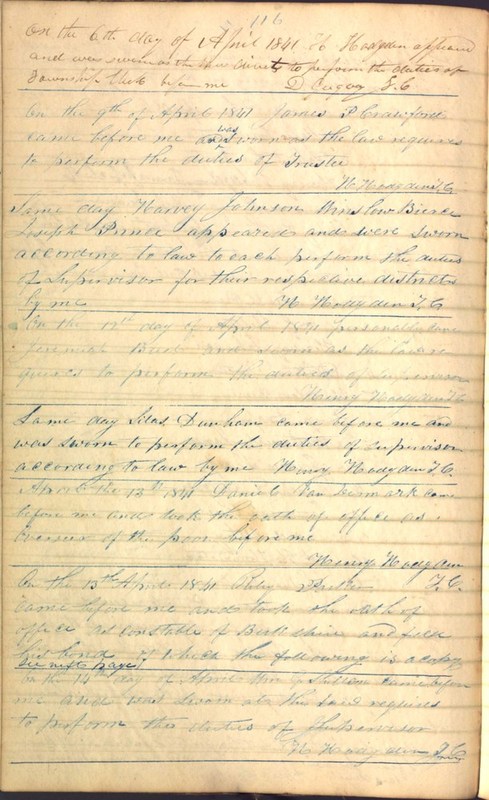 116
On the 6th day of April 1841 H Hodgden appeared
and was sworn as the law directs to perform the duties of
Township Clerk before me D J.C
On the 9th of April 1841 James P Crawford
came before me and was sworn as the law requires
to perform the duties of Trustee
H. Hodgden T.C.
Same day Harvey Johnson Winslow Bierce
Joseph Prince appeared and were sworn
according to law to each perform the duties
of Supervisor for their respective districts
by me H Hodgden T.C
On the 12th day of April 1841 personally came
and sworn as the law re
quires to perform the duties of Supervisor
Henry Hodgden T.C
Same day Silas Dunham came before me and
was sworn to perform the duties of supervisor
according to law by me Henry Hodgden T.C.
April the 13th 1841 Daniel Van came
before me and took the oath of office as
Overseer of the poor before me
Henry Hodgden
T.C.
On the 13th April 1841
came before me and took the oath of
office as constable of and filed
his bond of which the following is a copy
see next page
On the 14th day of April Wm came before
me and was sworn as the law requires
to perform the duties of Supervisor
H Hodgden T.C